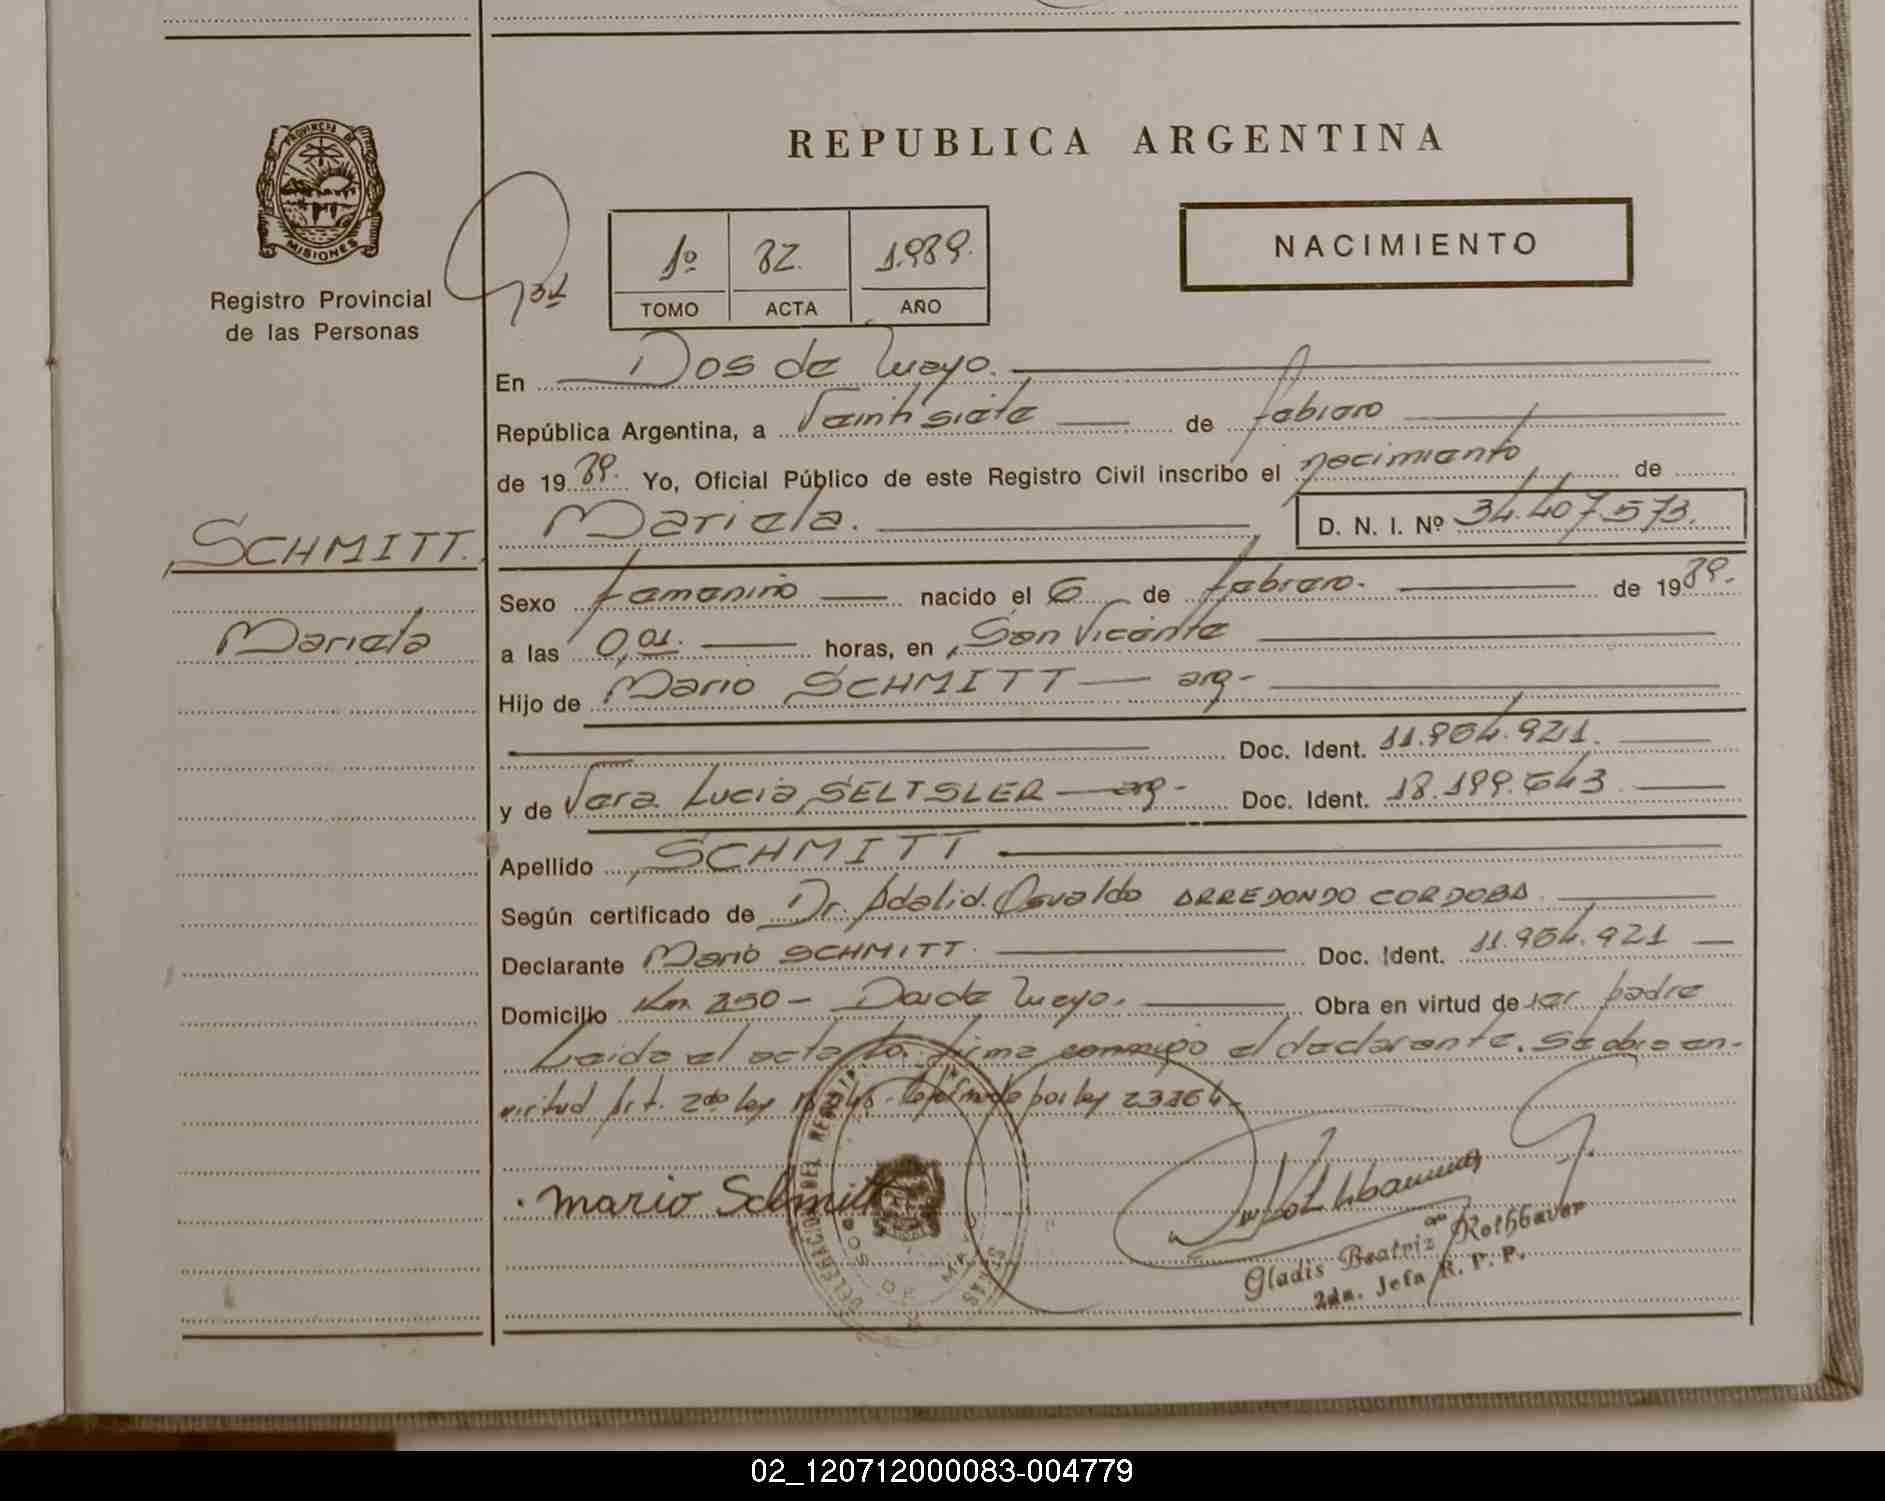 REPUBLICA ARGENTINA
PROVINCIA DE
MISIONES
Registro Provincial
de las Personas
1º 82. 1.989.
TOMO ACTA AÑO
NACIMIENTO
En Dos de Mayo.
República Argentina, a Veintisiete de febrero
de 1989. Yo, Oficial Público de este Registro Civil inscribo el nacimiento de
Mariela. D. N. I. Nº 34.407.573.
SCHMITT.
Mariela
Sexo femenino nacido el 6 de febrero. de 1989.
a las 0,01. horas, en San Vicente
Hijo de Mario SCHMITT — arg-
Doc. Ident. 11.964.921.
y de Vera Lucia SELTSLER — arg- Doc. Ident. 18.199.643
Apellido SCHMITT
Según certificado de Dr. Adalid. Osvaldo ARREDONDO CORDOBA
Declarante Mario SCHMITT. Doc. Ident. 11.964.921
Domicilio Km. 250 - Dos de Mayo. Obra en virtud de ser padre
Leida el acta la firma conmigo el declarante. Se obra en-
virtud Art. 2do ley por ley 23264-
mario Schmitt
Gladis Beatriz Rothbauer
2da. Jefa R. P. P.
02_120712000083-004779